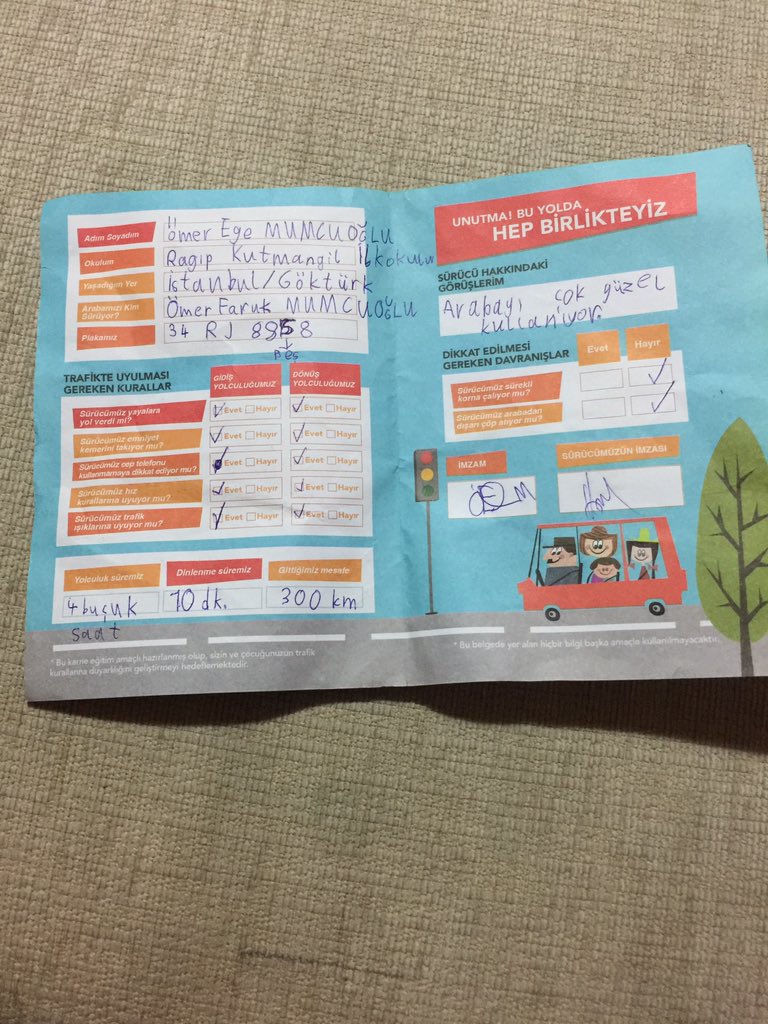 Adım Soyadım Ömer Ege MUMCUOĞLU
Okulum Ragıp Kutmangil İlkokulu
Yaşadığım Yer İstanbul/Göktürk
Arabamızı Kim Sürüyor? Ömer Faruk MUMCUOĞLU
Plakamız 34 RJ 8958
↓
beş
TRAFİKTE UYULMASI GEREKEN KURALLAR
GİDİŞ YOLCULUĞUMUZ
DÖNÜŞ YOLCULUĞUMUZ
Sürücümüz yayalara yol verdi mi? Evet Hayır Evet Hayır
Sürücümüz emniyet kemerini takıyor mu? Evet Hayır Evet Hayır
Sürücümüz cep telefonu kullanmamaya dikkat ediyor mu? Evet Hayır Evet Hayır
Sürücümüz hız kurallarına uyuyor mu? Evet Hayır Evet Hayır
Sürücümüz trafik ışıklarına uyuyor mu? Evet Hayır Evet Hayır
Yolculuk süremiz Dinlenme süremiz Gittiğimiz mesafe
4 buçuk saat 10 dk. 300 km
* Bu karne eğitim amaçlı hazırlanmış olup, sizin ve çocuğunuzun trafik
kurallarına duyarlılığını geliştirmeyi hedeflemektedir.
UNUTMA! BU YOLDA
HEP BİRLİKTEYİZ
SÜRÜCÜ HAKKINDAKİ
GÖRÜŞLERİM
Arabayı çok güzel
kullanıyor.
DİKKAT EDİLMESİ
GEREKEN DAVRANIŞLAR
Evet Hayır
Sürücümüz sürekli
korna çalıyor mu?
Sürücümüz arabadan
dışarı çöp atıyor mu?
İMZAM SÜRÜCÜMÜZÜN İMZASI
ÖEM
* Bu belgede yer alan hiçbir bilgi başka amaçla kullanılmayacaktır.